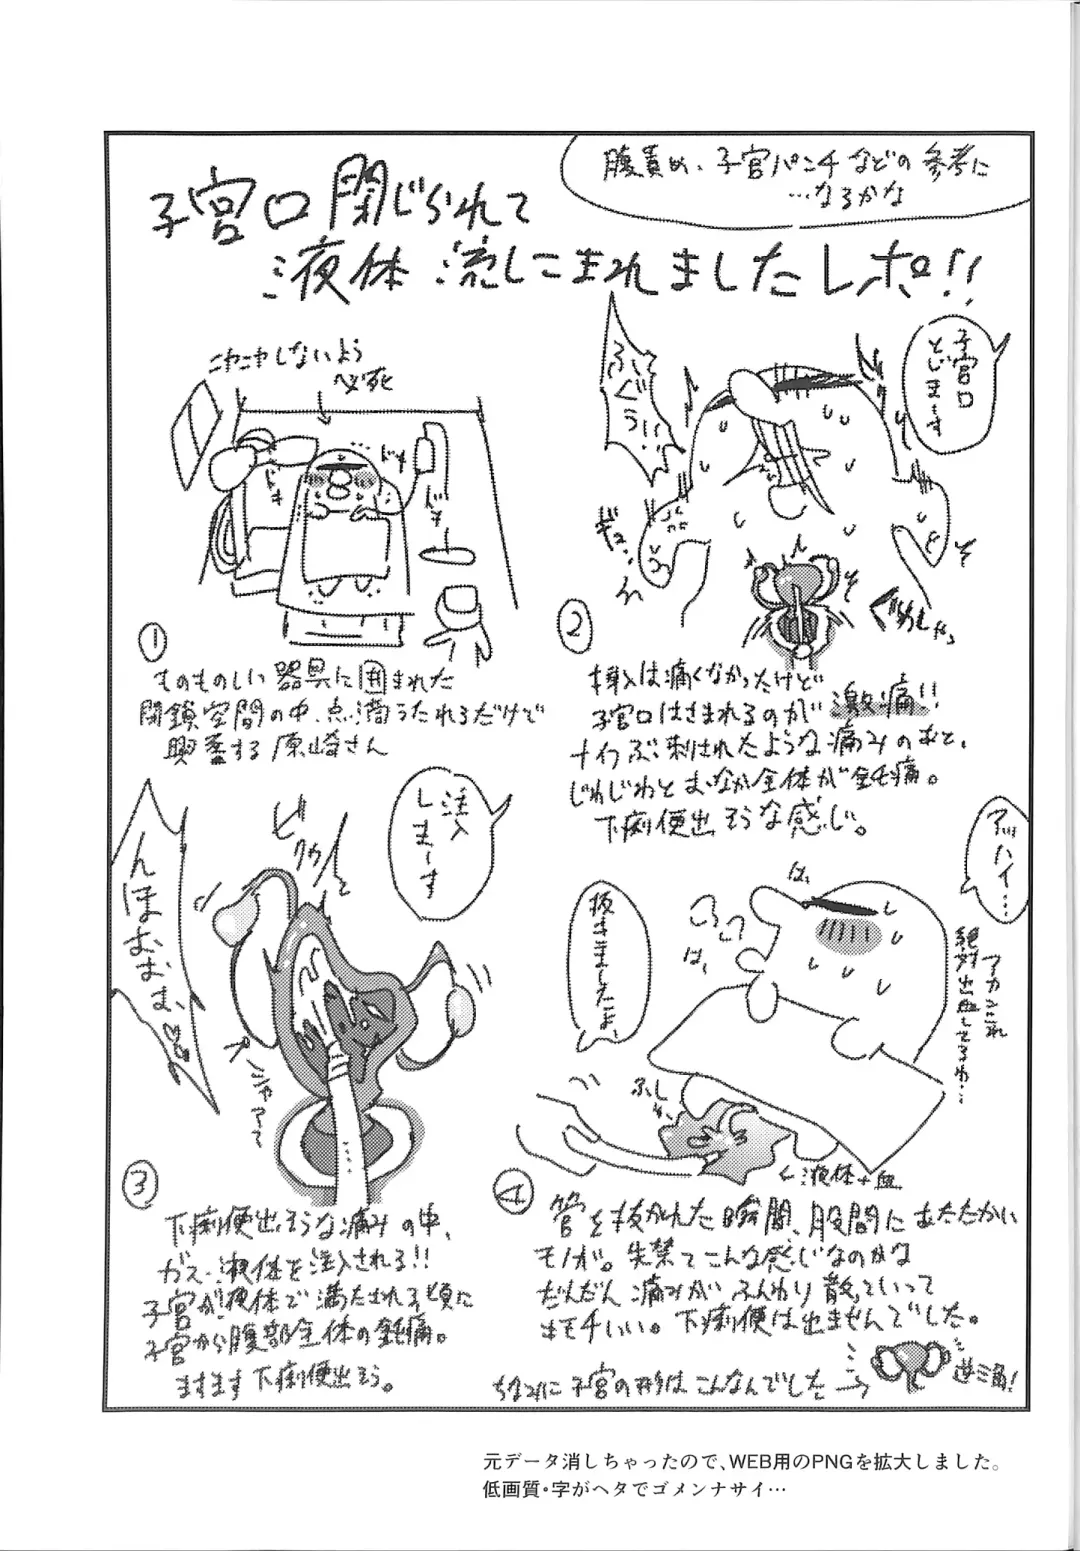 腹責め、子宮パンチなどの参考に
…なるかな
子宮口閉じられて
液体流しこまれましたレポ!!
ニヤニヤしないよう
必死
ドキ
ドキ
ドキ
①
ものものしい器具に囲まれた
閉鎖空間の中、点滴うたれるだけで
興奮する原崎さん
子宮口
とじまーす
ふんぐぅぅい
ギュ
ぐめしゃっ
②
挿入は痛くなかったけど
子宮口はさまれるのが激痛!!
ナイフぶっ刺されたような痛みのあと、
じわじわとおなか全体が鈍痛。
下痢便出そうな感じ。
注入
しまーす
ビクカ
んほおおお♡
③
下痢便出そうな痛みの中、
ガス・液体を注入される!!
子宮が液体で満たされる頃に
子宮から腹部全体の鈍痛。
ますます下痢便出そう。
アッハイ…
アカンこれ
絶対出血してるわ…
抜きましたよ
は、
は、
ふしゅ
←液体+血
④
管を抜かれた瞬間、股間にあたたかい
モノが。失禁てこんな感じなのかな
だんだん痛みがふんわり散っていって
キモチいい。下痢便は出ませんでした。
ちなみに子宮の形はこんなんでした→
逆三角!
元データ消しちゃったので、WEB用のPNGを拡大しました。
低画質・字がヘタでゴメンナサイ…